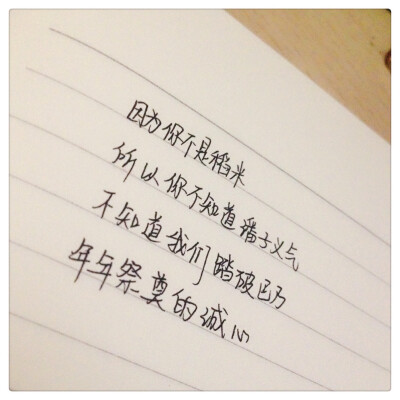 因为你不是稻米
所以你不知道番子义气
不知道我们踏破巴乃
年年祭奠的诚心